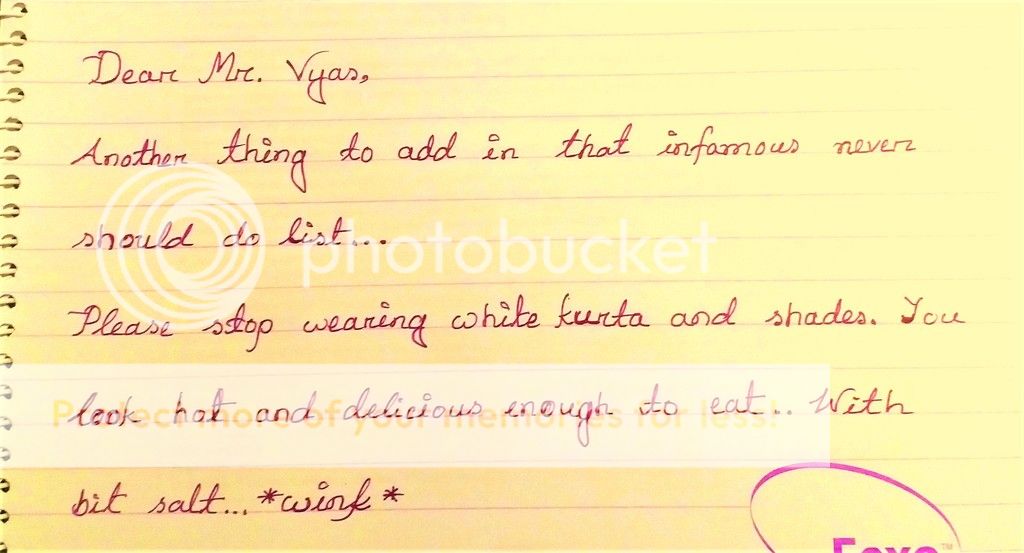 Dear Mr. Vyas,
Another thing to add in that infamous never
should do list...
photobucket
Please stop wearing white kurta and shades. You
look hot and delicious enough to eat.. With
Protect more of your memories for less!
bit salt... *wink*